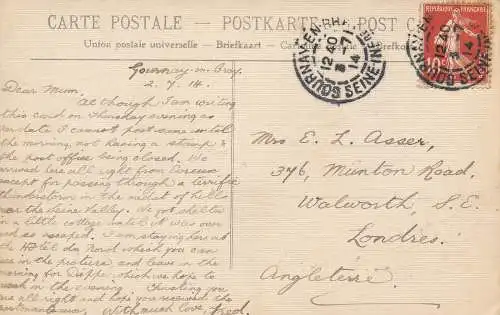 CARTE POSTALE — POSTKARTE — POST
Union postale universelle — Briefkaart — Cartolina
Gournay-en-Bray
2. 7. 14.
Dear Mum,
Although I am writing
this card on Thursday evening as
I cannot post same until
the morning, not having a stamp &
the post office being closed. We
arrived here all right from
except for passing through a terrific
thunderstorm in the midst of hills
near the Seine Valley. We got shelter
in a little cottage until it was over
and so escaped. I am staying here at
the Hôtel du Nord which you can
see in the picture and leave in the
morning for Dieppe which we hope to
reach in the evening. Trusting you
are all right and hope you received the
With much love, Fred.
GOURNAY-EN-BRAY
12 40
3 - 7
14
SEINE INFRE
12 40
14
SEINE
10
Mrs E. L. Asser,
376, Munton Road,
Walworth, S.E.
Londres.
Angleterre.